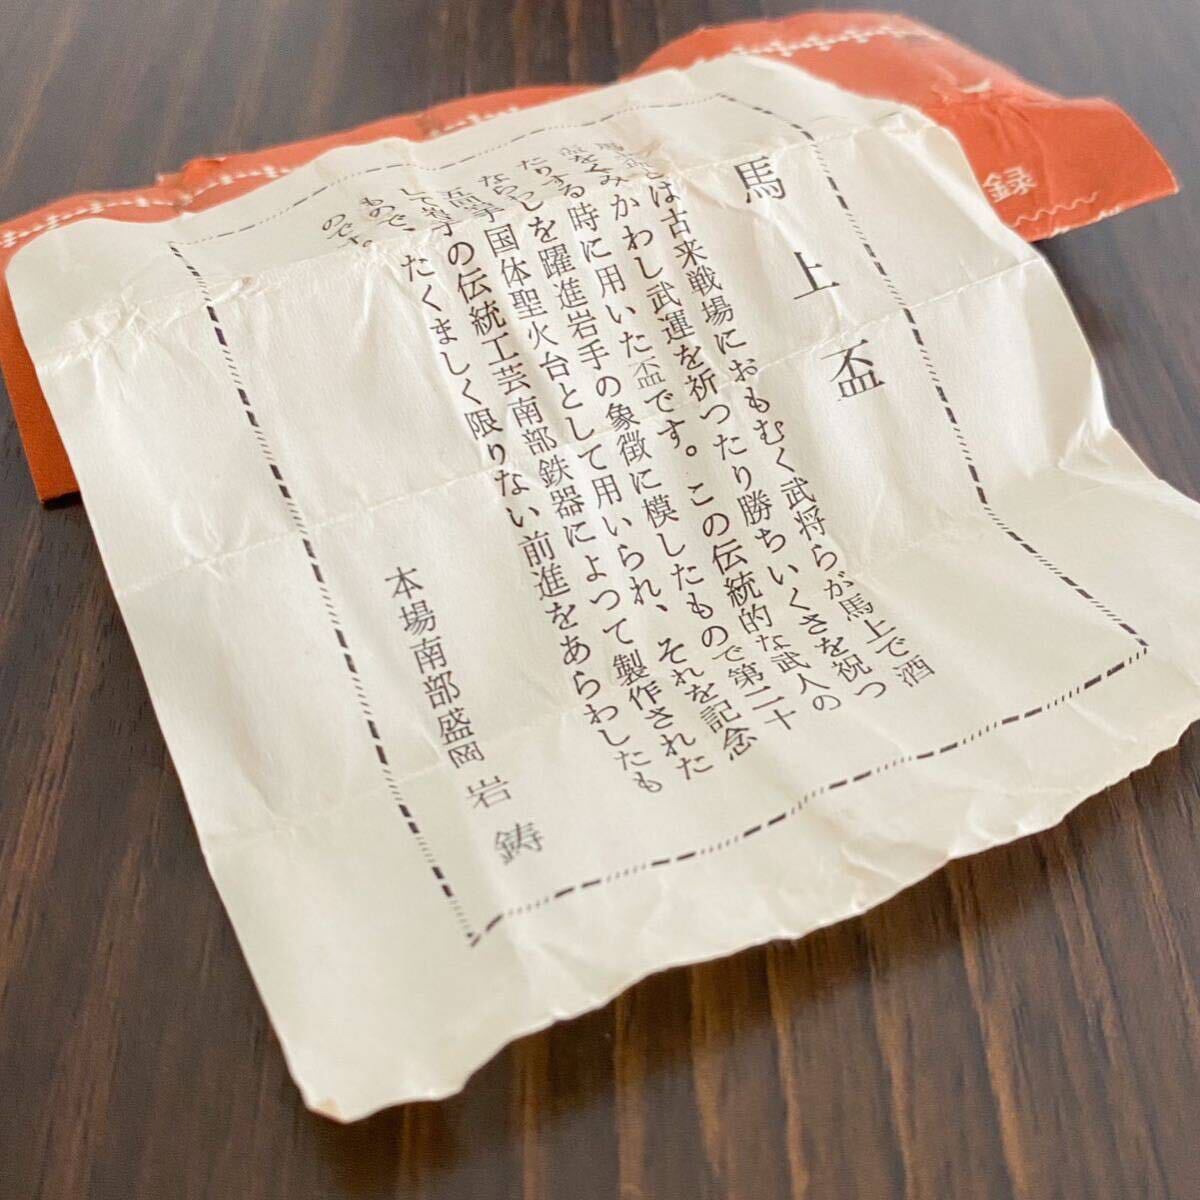 馬上盃
とは古来戦場におもむく武将らが馬上で酒
をくみかわし武運を祈つたり勝ちいくさを祝つ
たりする時に用いた盃です。この伝統的な武人の
ならわしを躍進岩手の象徴に模したもので第二十
五回岩手国体聖火台として用いられ、それを記念
して岩手の伝統工芸南部鉄器によつて製作された
もので、たくましく限りない前進をあらわしたも
のです。
本場南部盛岡 岩鋳
録